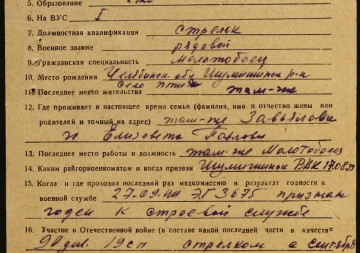 5. Образование
6. На ВУС
7. Должностная квалификация стрелок
8. Военное звание рядовой
9. Гражданская специальность Молотобоец
10. Место рождения Челябинск. обл. р-н
Село
11. Последнее место жительства там-же
12. Где проживает в настоящее время семья (фамилия, имя и отчество жены или
родителей и точный адрес) там-же Завьялова
Елизавета
13. Последнее место работы и должность там-же Молотобоец
14. Каким райгорвоенкоматом и когда призван РВК
15. Когда и где проходил последний раз медкомиссию и результат годности к
военной службе 27.09.44 ЭГ 3675 признан
годен к строевой службе
16. Участие в Отечественной войне (в составе какой последней части в качеств
19 сп стрелком с сентября